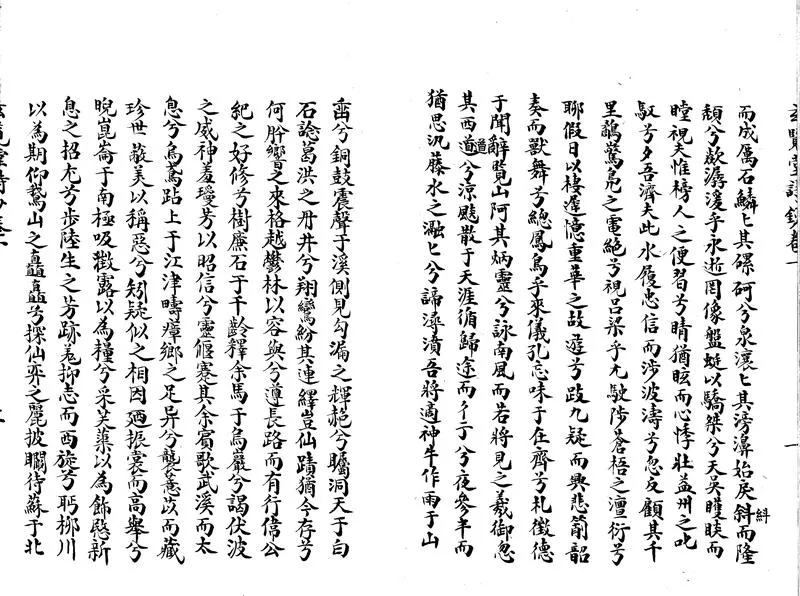 而成厲石鱗匕其磥砢兮泉瀼匕其滂濞始戾斜而隆
糾
頹兮歘潺湲乎永逝罔像盤蜓以驕桀兮天吳矆睒而
瞠視夫惟榜人之便習兮睛猶眩而心悸壯益州之叱
馭兮夕吾濟夫此水履忠信而涉波濤兮忽反顧其千
里鷁驚鳧之電絶兮視呂梁乎九駛陟蒼梧之澶衍兮
聊假日以棲遲憶重華之故遊兮跂九疑而興悲簫韶
奏而獸舞兮總鳳鳥乎來儀孔忘味于在齊兮札徵德
于聞辭覽山阿其炳靈兮詠南風而若將見之羲御忽
道
其西道兮涼颷散于天涯循歸途而彳亍兮夜參半而
猶思汎藤水之瀜匕兮諦濤瀆吾將適神牛作雨于山
嵒兮銅鼓震聲于溪側見勾漏之輝赩兮矚洞天于白
石諗葛洪之丹井兮翔鸞紛其連繹豈仙蹟猶今存兮
何肸蠁之來格越鬱林以容與兮遵長路而有行偉公
紀之好修兮樹廉石于千齡釋余馬于烏巖兮謁伏波
之威神羞璦芳以昭信兮靈偃蹇其余賓歌武溪而太
息兮烏鳶跕上于江津疇瘴鄉之足异兮襲薏苡而藏
珍世蔽美以稱惡兮矧疑似之相因廼振裳而高舉兮
睨崑崙于南極吸瀣露以為糧兮采芙蕖以為飾慇新
息之招尤兮步陸生之芳跡羌抑志而西旋兮眄柳川
以為期仰鵞山之矗矗兮探仙弈之麗披矙待蘇于北